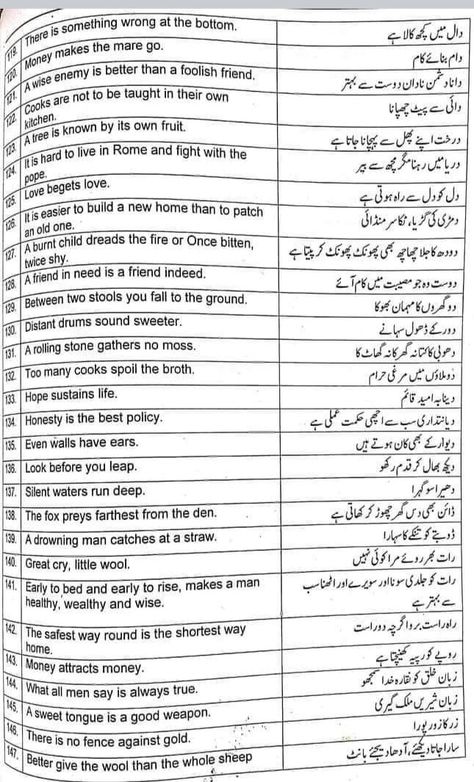 119. There is something wrong at the bottom. دال میں کچھ کالا ہے
120. Money makes the mare go. دام بنائے کام
121. A wise enemy is better than a foolish friend. دانا دشمن نادان دوست سے بہتر
122. Cooks are not to be taught in their own دائی سے پیٹ چھپانا
kitchen.
123. A tree is known by its own fruit. درخت اپنے پھل سے پہچانا جاتا ہے
124. It is hard to live in Rome and fight with the دریا میں رہنا مگر مچھ سے بیر
pope.
125. Love begets love. دل کو دل سے راہ ہوتی ہے
126. It is easier to build a new home than to patch دمڑی کی گڑیا، ٹکا سر منڈائی
an old one.
127. A burnt child dreads the fire or Once bitten, دودھ کا جلا چھاچھ بھی پھونک پھونک کر پیتا ہے
twice shy.
128. A friend in need is a friend indeed. دوست وہ جو مصیبت میں کام آئے
129. Between two stools you fall to the ground. دو گھروں کا مہمان بھوکا
130. Distant drums sound sweeter. دور کے ڈھول سہانے
131. A rolling stone gathers no moss. دھوبی کا کتا نہ گھر کا نہ گھاٹ کا
132. Too many cooks spoil the broth. دو ملاؤں میں مرغی حرام
133. Hope sustains life. دنیا بہ امید قائم
134. Honesty is the best policy. دیانتداری سب سے اچھی حکمت عملی ہے
135. Even walls have ears. دیوار کے بھی کان ہوتے ہیں
136. Look before you leap. دیکھ بھال کر قدم رکھو
137. Silent waters run deep. دھیرا سو گہرا
138. The fox preys farthest from the den. ڈائن بھی دس گھر چھوڑ کر کھاتی ہے
139. A drowning man catches at a straw. ڈوبتے کو تنکے کا سہارا
140. Great cry, little wool. رات بھر روئے مرا کوئی نہیں
141. Early to bed and early to rise, makes a man رات کو جلدی سونا اور سویرے اور اٹھنا سب
healthy, wealthy and wise. سے بہتر ہے
142. The safest way round is the shortest way راہ راست برو اگرچہ دور است
home.
143. Money attracts money. روپے کو روپیہ کھینچتا ہے
144. What all men say is always true. زبان خلق کو نقارہ خدا سمجھو
145. A sweet tongue is a good weapon. زبان شیریں ملک گیری
146. There is no fence against gold. زر کا زور پورا
147. Better give the wool than the whole sheep سارا جاتا دیکھئے، آدھا دیجئے بانٹ